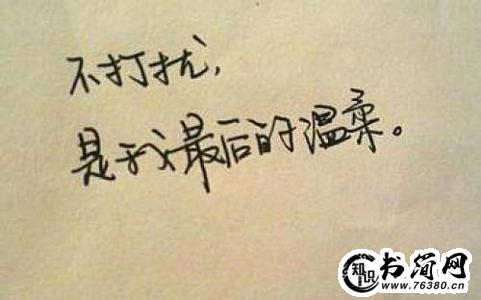 不打扰,
是我最后的温柔。
知识
书简网
www.76380.cn